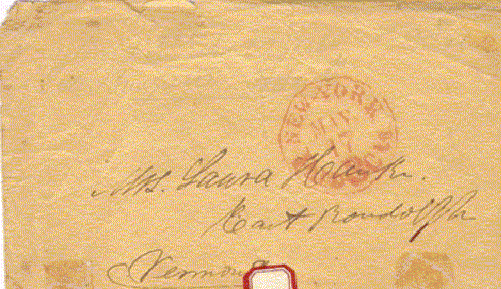 NEW-YORK
MAY
Mrs. Laura
East Randolph
Vermont